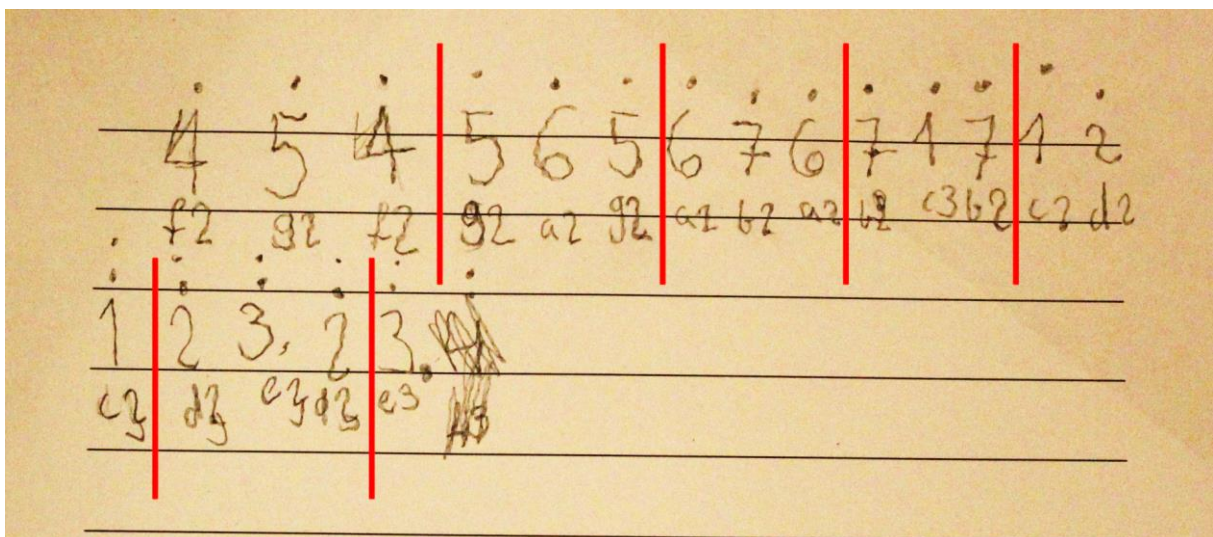 4 5 4 5 6 5 6 7 6 7 1 7 1 2
f2 g2 f2 g2 a2 g2 a2 b2 a2 b2 c3 b2 c3 d2
1 2 3. 2 3.
c3 d3 e3 d3 e3